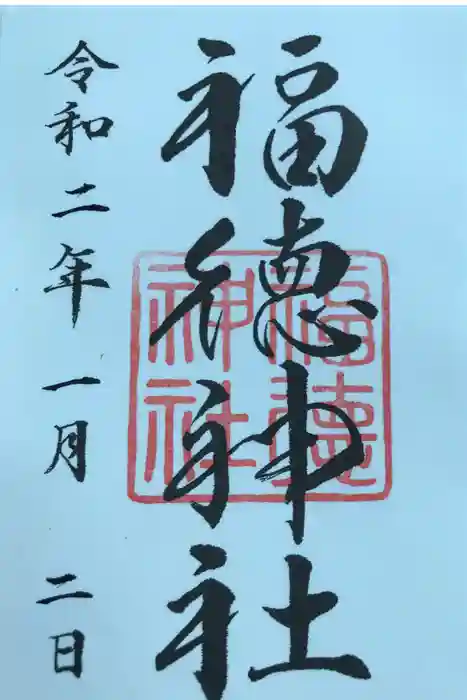 福徳神社
福徳
神社
令和二年一月二日